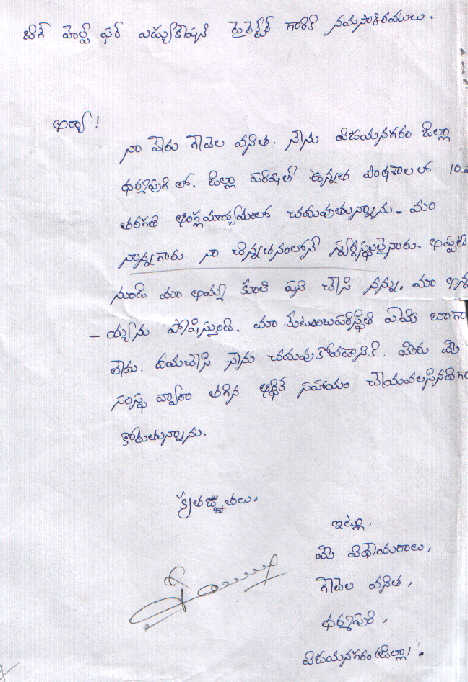 బిగ్ హెల్ప్ ఫర్ ఎడ్యుకేషన్ డైరెక్టర్ గారికి నమస్కారములు.
అయ్యా!
నా పేరు గొవెల వనిత. నేను విజయనగరం జిల్లా
ధర్మపురి లో. జిల్లా పరిషత్ ఉన్నత పాఠశాల లో 10వ
తరగతి ఆంగ్లమాధ్యమంలో చదువుతున్నాను. మా
నాన్నగారు నా చిన్నతనంలోనే స్వర్గస్థులైనారు. అప్పటి
నుండి మా అమ్మ కూలి పని చేసి నన్ను, మా
- య్యను పోషిస్తుంది. మా కుటుంబపరిస్థితి ఏమి బాగా
లేదు. దయచేసి నేను చదువుకోవడానికి. మీరు మీ
సంస్థ ద్వారా తగిన ఆర్థిక సహాయం చేయవలసినదిగా
కోరుతున్నాను.
కృతజ్ఞతలు.
ఇట్లు,
మీ విధేయురాలు,
గొవెల వనిత,
ధర్మపురి,
విజయనగరం (జిల్లా).